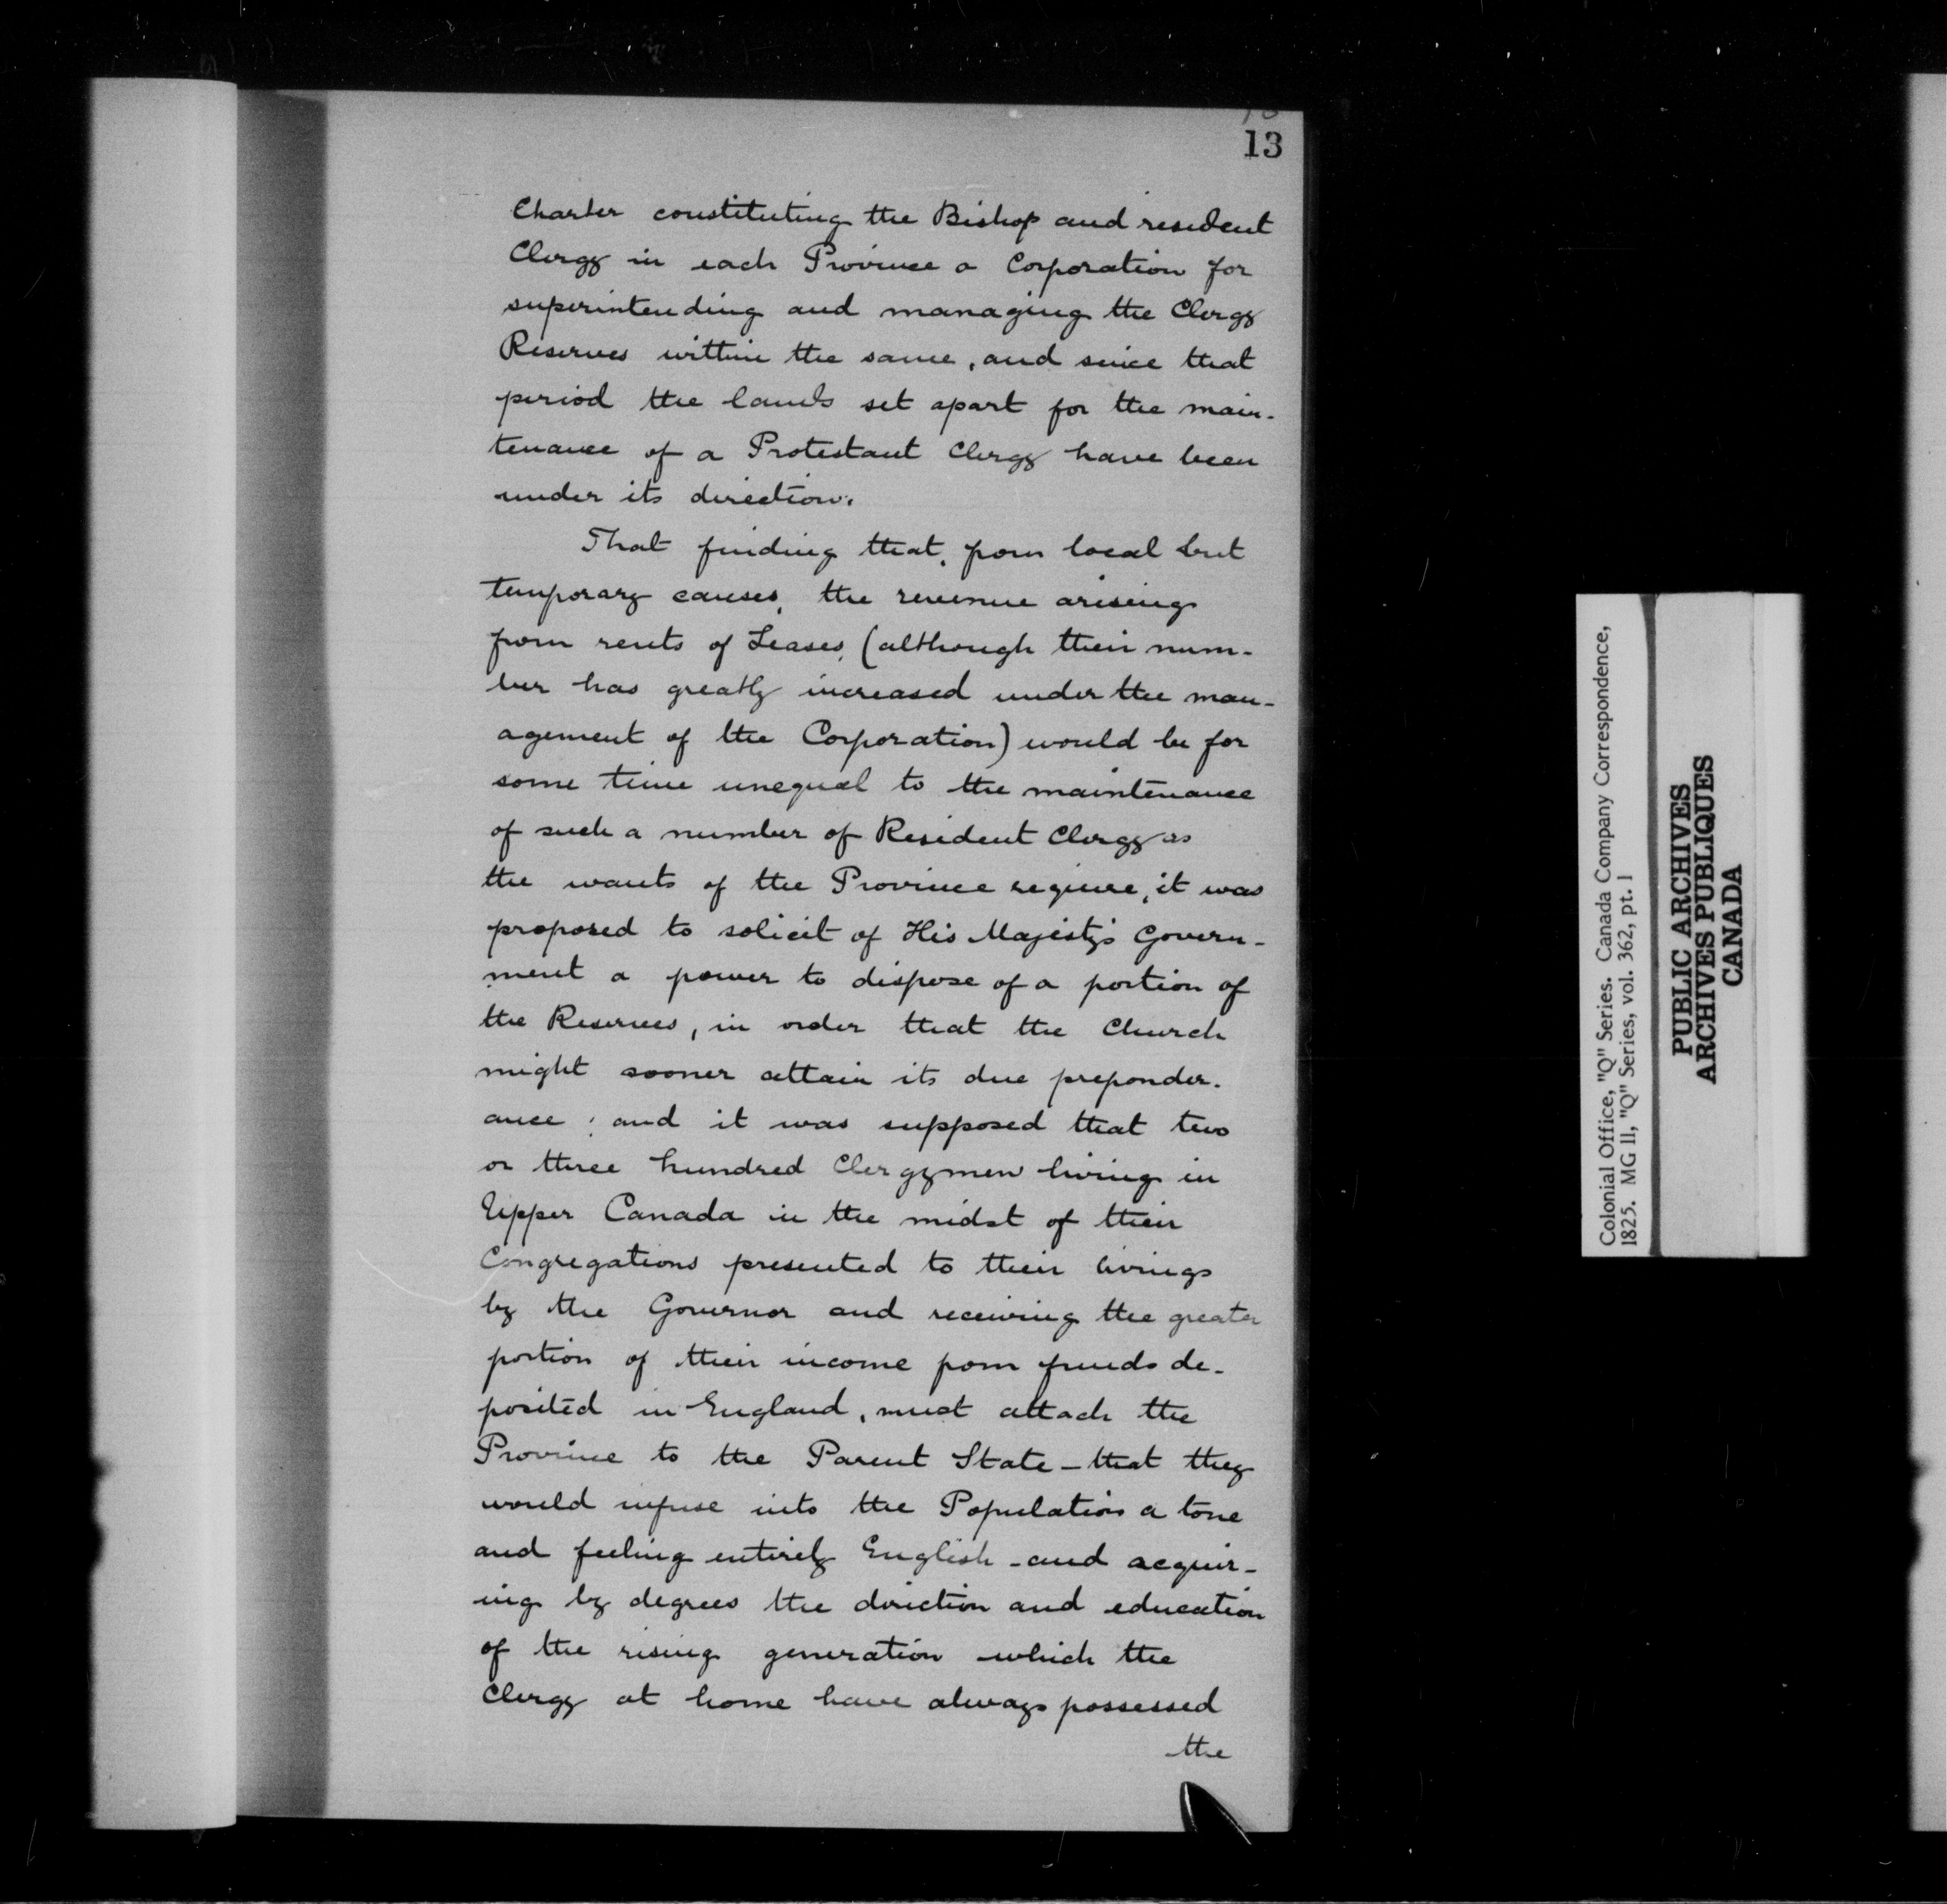 13
Charter constituting the Bishop and resident
Clergy in each Province a Corporation for
superintending and managing the Clergy
Reserves within the same, and since that
period the lands set apart for the main-
tenance of a Protestant Clergy have been
under its direction.
That finding that, from local but
temporary causes, the revenue arising
from rents of Leases, (although their num-
ber has greatly increased under the man-
agement of the Corporation) would be for
some time unequal to the maintenance
of such a number of Resident Clergy as
the wants of the Province require, it was
proposed to solicit of His Majesty's Govern-
ment a power to dispose of a portion of
the Reserves, in order that the Church
might sooner attain its due preponder-
ance; and it was supposed that two
or three hundred Clergymen living in
Upper Canada in the midst of their
Congregations presented to their livings
by the Governor and receiving the greater
portion of their income from funds de-
posited in England, must attach the
Province to the Parent State - that they
would infuse into the Population a tone
and feeling entirely English - and acquir-
ing by degrees the direction and education
of the rising generation which the
Clergy at home have always possessed
the
Colonial Office, "Q" Series. Canada Company Correspondence,
1825. MG 11, "Q" Series, vol. 362, pt. 1
PUBLIC ARCHIVES
ARCHIVES PUBLIQUES
CANADA